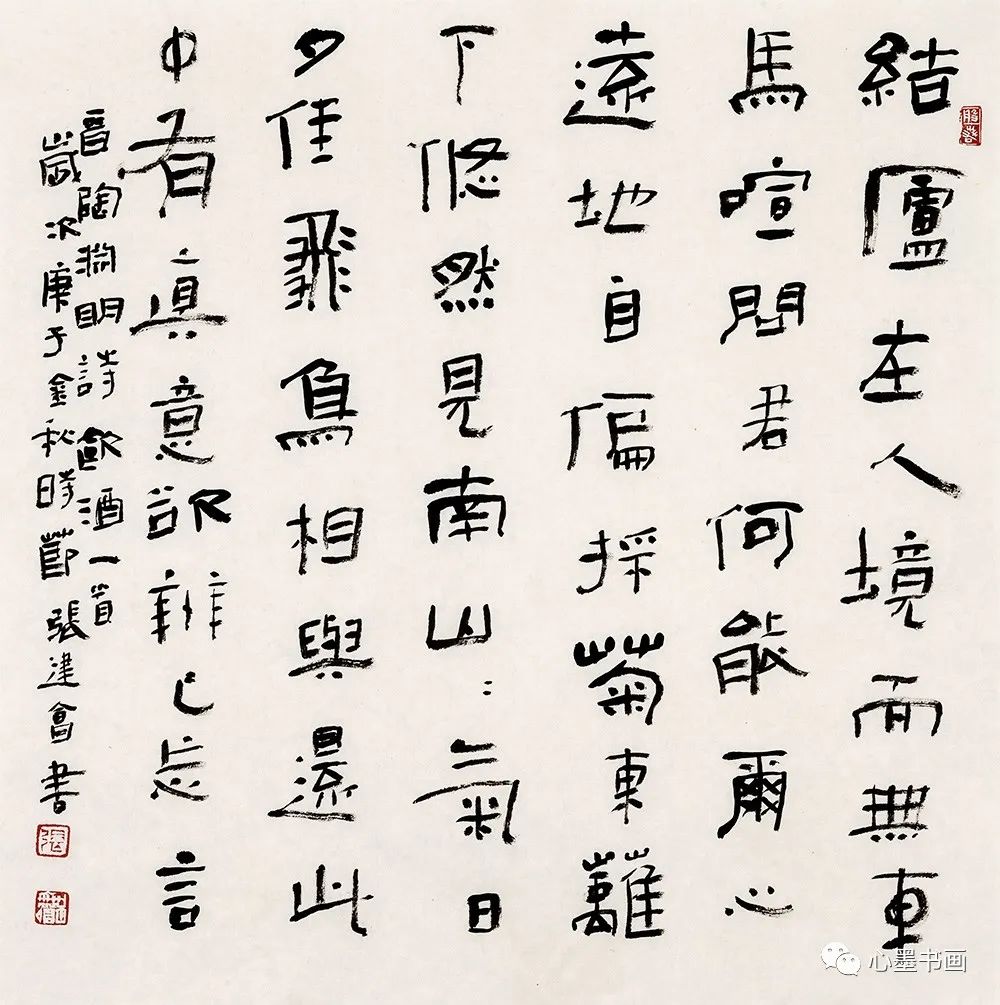 結廬在人境而無車
馬喧問君何能爾心
遠地自偏採菊東籬
下悠然見南山〻氣日
夕佳飛鳥相與還此
中有真意欲辨已忘言
晉陶淵明詩飲酒一首
歲次庚子金秋時節張建會書
心墨书画